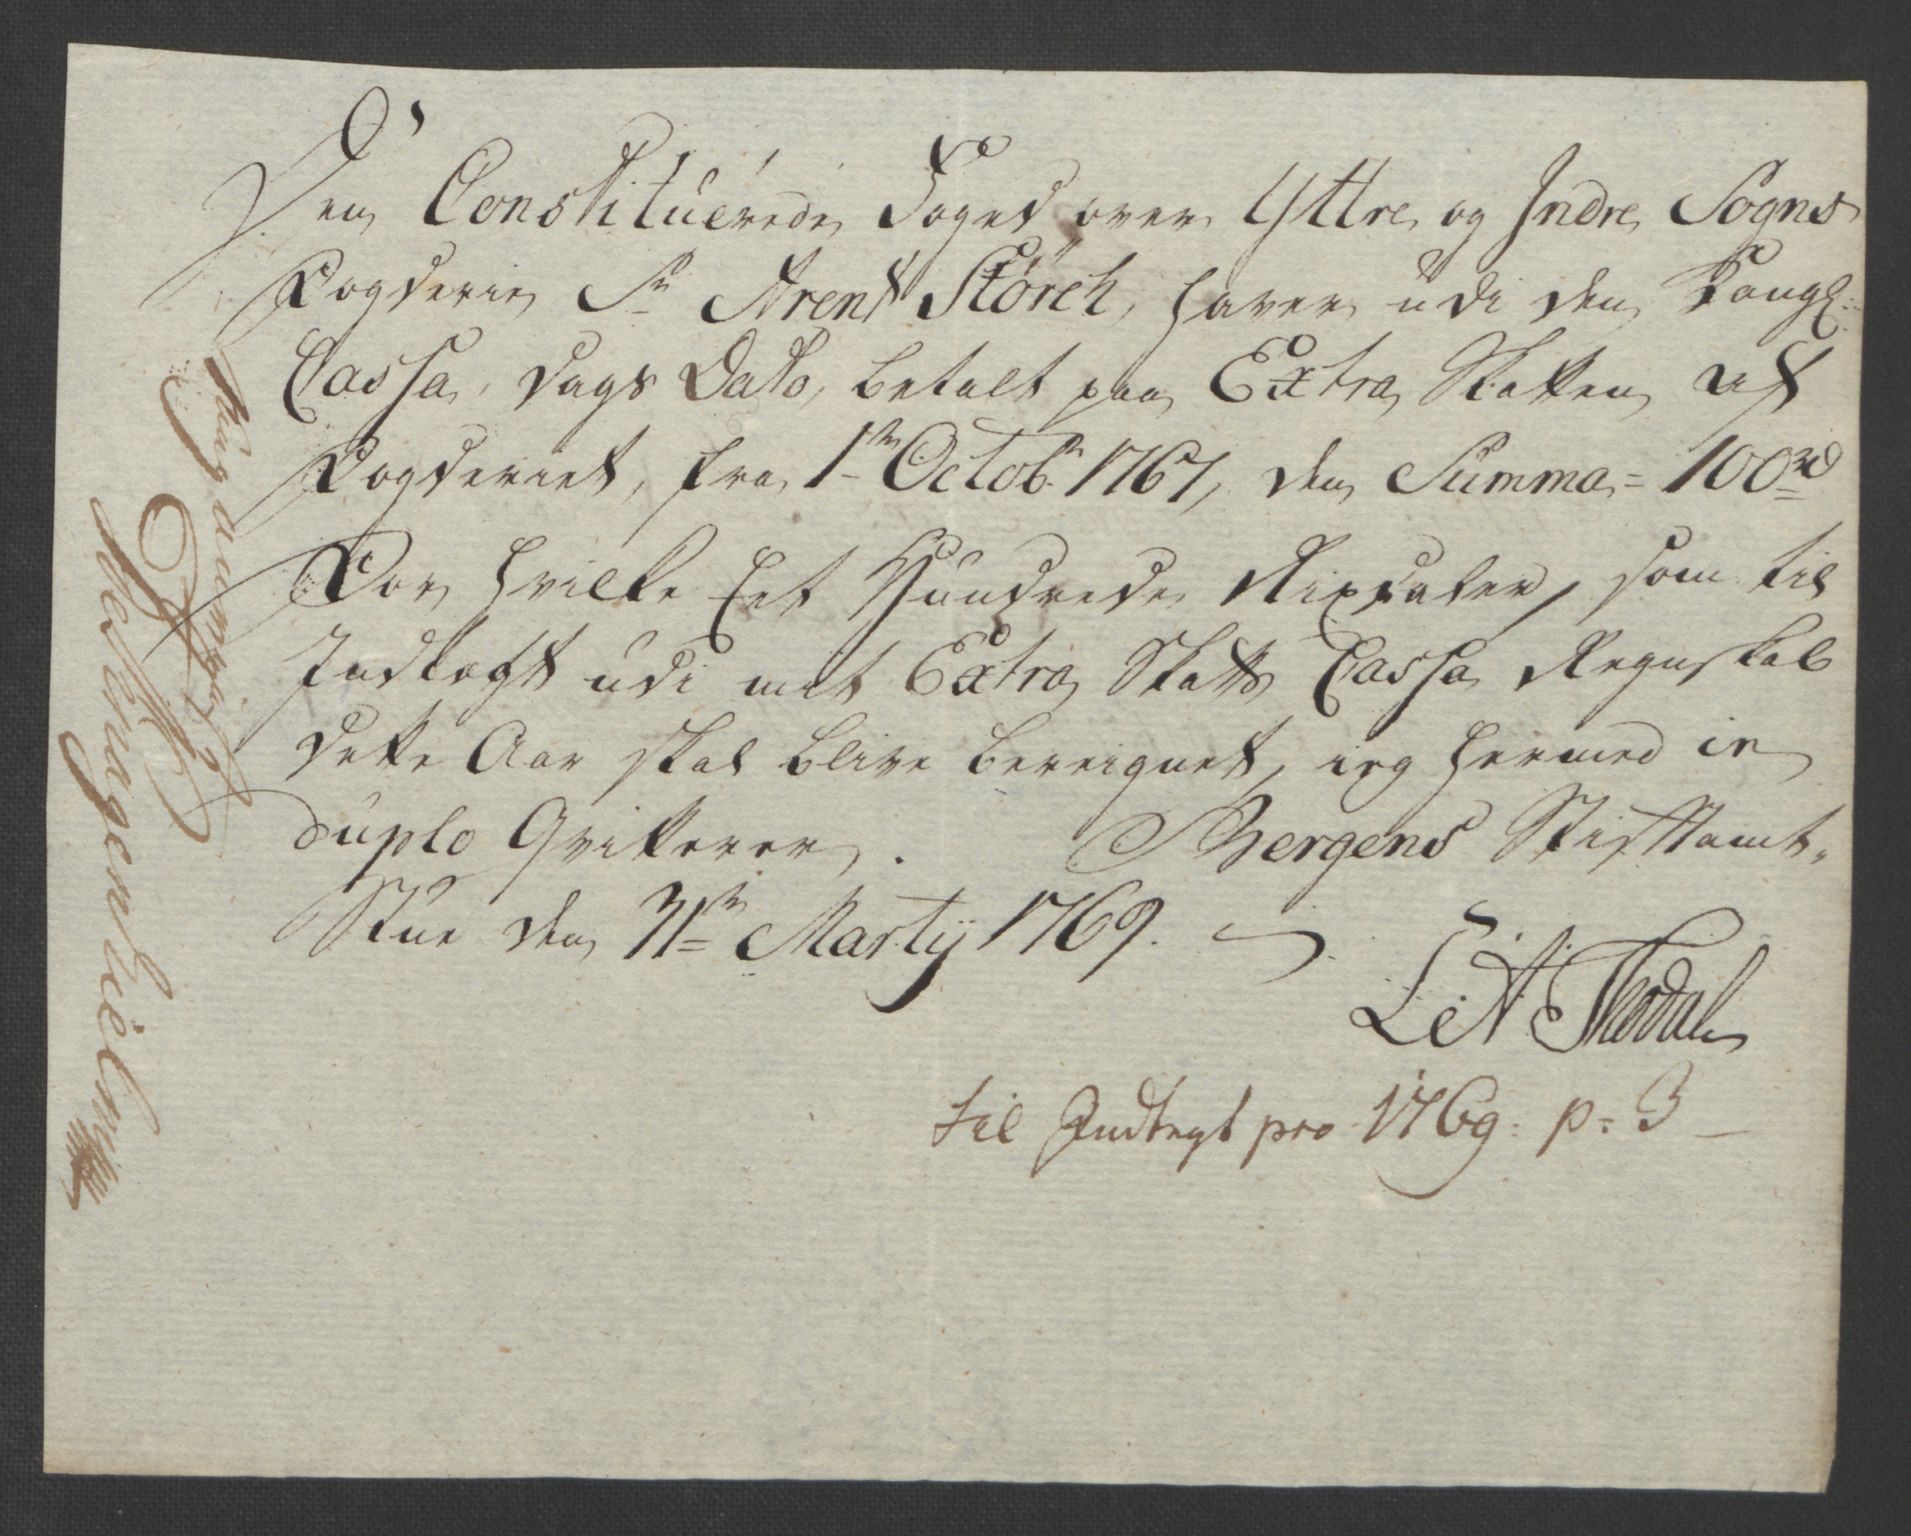 Den Constituerede Foged over Yttre og Indre Sogns
Fogderie Sr Arent Störch, haver udi den Kongl:
Cassa, Dags Dato, betalt paa Extra Skatten af
Fogderiet, fra 1te Octobr 1767, den Summa = 100 rd
For hvilke Eet Hundrede Rixdaler, som til
Indtægt udi mit Extra Skatts Cassa Regnskab
dette Aar skal blive bereignet, ieg hermed in
duplo Qvitterer. Bergens Stiftamt-
Stue den 31te Martij 1769.
Thodal
til Indtegt pro 1769. p. 3